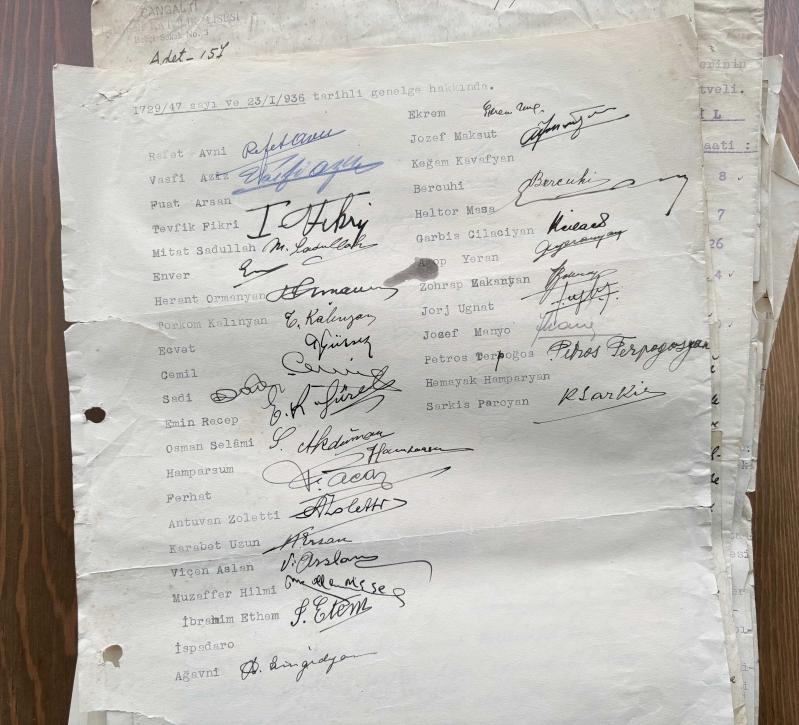 PANGALTI
LİSESİ
Sokak No. 3
Adet - 157
1729/47 sayı ve 23/I/936 tarihli genelge hakkında.
Refet Avni Refet Avni
Vasfi Aziz Vasfi Aziz
Fuat Arsan
Tevfik Fikri T Fikri
Mitat Sadullah M. Sadullah
Enver
Herant Ormanyan
Porkom Kalinyan T. Kalinyan
Ecvet
Cemil Cemil
Sadi
Emin Recep E. R. Gürel
Osman Selâmi S. Akduman
Hamparsum Hamparsum
Ferhat F. Acar
Antuvan Zoletti AZoletti
Karabet Uzun
Viçen Aslan V. Arslan
Muzaffer Hilmi
İbrahim Ethem İ. Etem
İspadaro
Ağavni
Ekrem
Jozef Maksut
Keğam Kavafyan
Bercuhi Bercuhi
Heltor Masa
Garbis Cilaciyan
Yeran
Zohrap Zakaryan
Jorj Ugnat
Jozef Manyo
Petros Terpoğos Petros Terpogosyan
Hemayak Hamparyan
Sarkis Paroyan P. Sarkis
erinin
tveli.
İ L
aati :
8
7
26
4